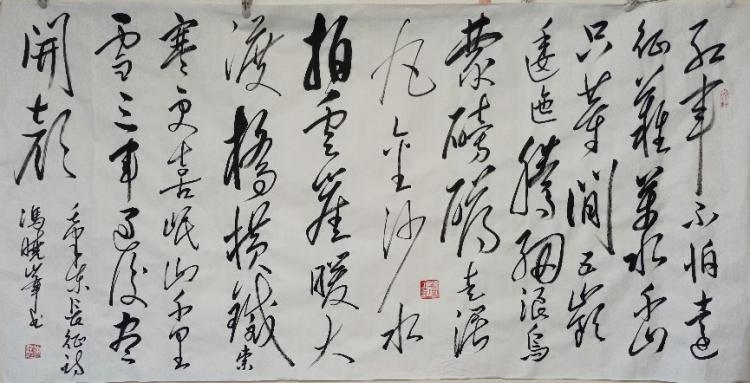 紅軍不怕遠
征難萬水千山
只等閒五嶺
逶迤騰細浪烏
蒙磅礴走泥
丸金沙水
拍雲崖暖大
渡橋橫鐵索
寒更喜岷山千里
雪三軍過後盡
開顏
毛澤東長征詩
馮曉華書